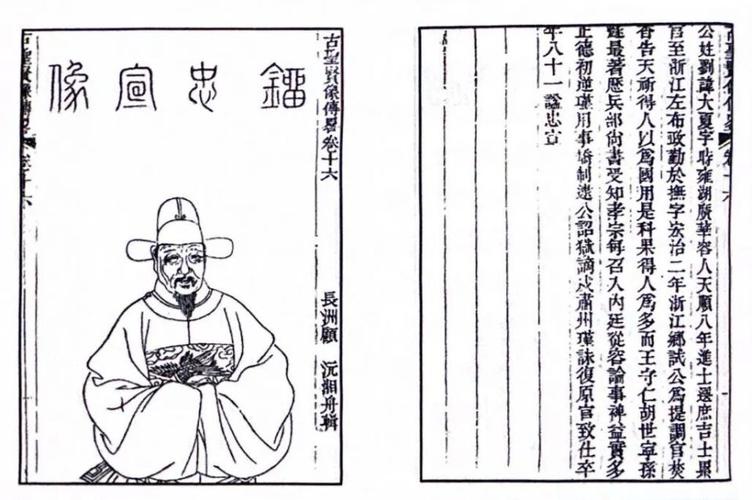 鎦忠宣像
古聖賢像傳畧 卷十六
長洲顧 沅湘舟輯
公姓劉諱大夏字時雍湖廣華容人天順八年進士選庶吉士累
官至浙江左布政勤於撫字宏治二年浙江鄉試公爲提調官焚
香告天祈得人以爲國用是科果得人爲多而王守仁胡世寧孫
燧最著歷兵部尚書受知孝宗每召入内廷從容論事裨益實多
正德初逆瑾用事矯制逮公詔獄謫戍肅州瑾誅復原官致仕卒
年八十一諡忠宣